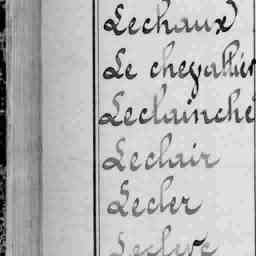 Lechaux)
Le chevallier
Leclainche
Leclair
Lecler
Leclerc